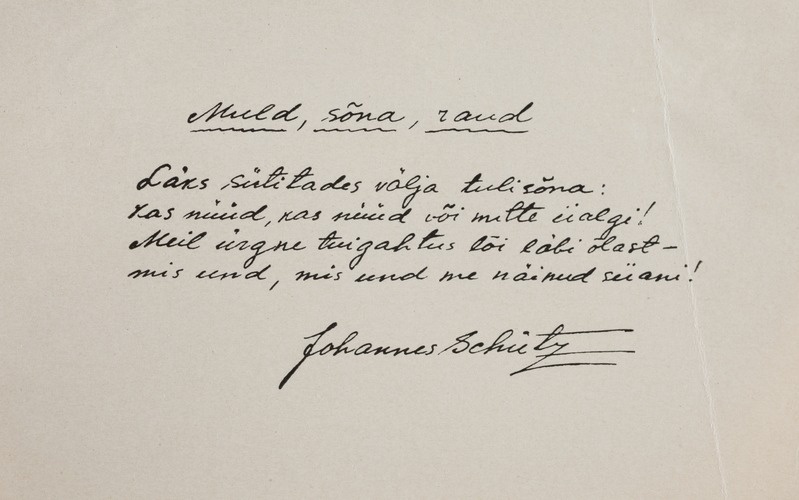 Muld, sõna, raud
Läks süütitades välja tulisõna:
kas nüüd, kas nüüd või mitte iialgi!
Meil ürgne tuigahtus lõi läbi õlast –
mis und, mis und me näinud siiani!
Johannes Schütz